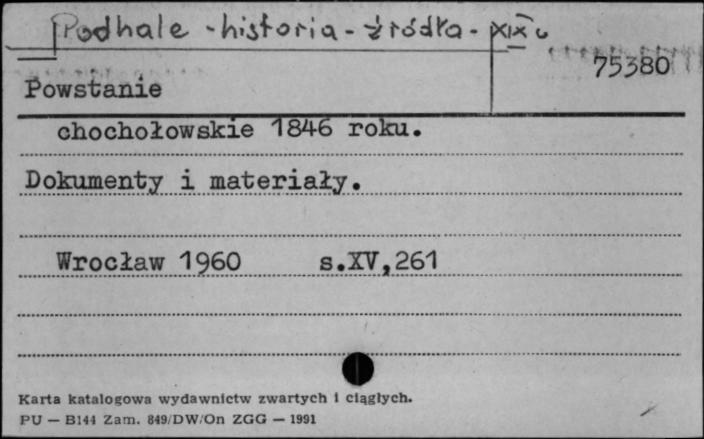 Podhale - historia - źródła - XIX w
75380
Powstanie
chochołowskie 1846 roku.
Dokumenty i materiały.
Wrocław 1960 s.XV,261
Karta katalogowa wydawnictw zwartych i ciągłych.
PU — B144 Zam. 849/DW/On ZGG — 1991